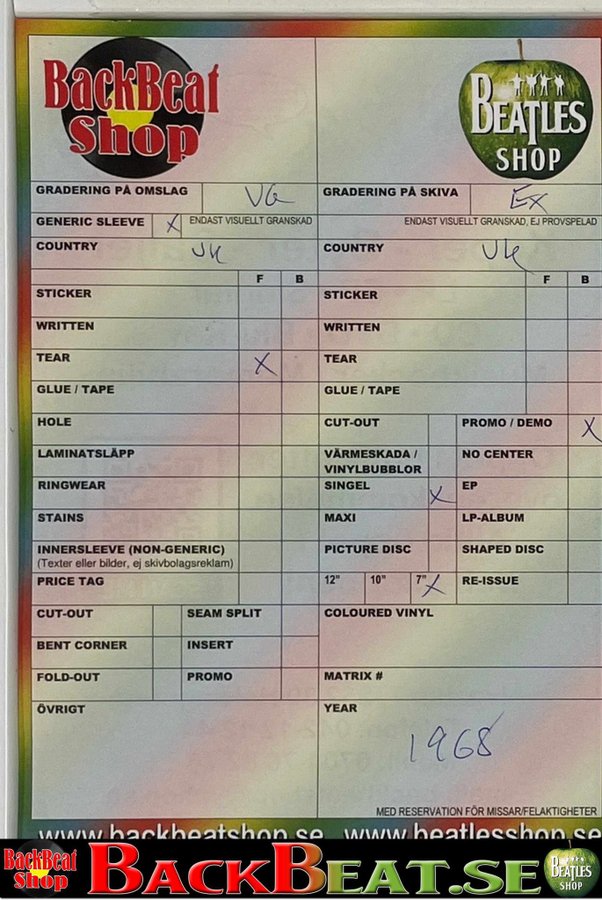 BackBeat
Shop
BEATLES
SHOP
GRADERING PÅ OMSLAG VG
GRADERING PÅ SKIVA Ex
GENERIC SLEEVE X ENDAST VISUELLT GRANSKAD
ENDAST VISUELLT GRANSKAD, EJ PROVSPELAD
COUNTRY UK
COUNTRY UK
F B
F B
STICKER
STICKER
WRITTEN
WRITTEN
TEAR X
TEAR
GLUE / TAPE
GLUE / TAPE
HOLE
CUT-OUT
PROMO / DEMO X
LAMINATSLÄPP
VÄRMESKADA /
VINYLBUBBLOR
NO CENTER
RINGWEAR
SINGEL X
EP
STAINS
MAXI
LP-ALBUM
INNERSLEEVE (NON-GENERIC)
(Texter eller bilder, ej skivbolagsreklam)
PICTURE DISC
SHAPED DISC
PRICE TAG
12" 10" 7" X
RE-ISSUE
CUT-OUT
SEAM SPLIT
COLOURED VINYL
BENT CORNER
INSERT
FOLD-OUT
PROMO
MATRIX #
ÖVRIGT
YEAR
1968
MED RESERVATION FÖR MISSAR/FELAKTIGHETER
www.backbeatshop.se www.beatlesshop.se
BackBeat
Shop
BACKBEAT.SE
BEATLES
SHOP